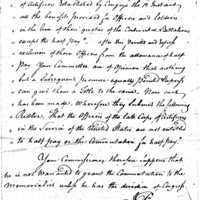 of Artificers Established by Congress the 12 Instant,
all the benefits provided for Officers and Soldiers
in the line of their quotas of the Continental Battalions
except the half Pay
exclusion of those Officers from the allowance of half
Pay Your Committee are of Opinion that nothing
but a Subsequent Promise equally
can give them a Title to the same. None such
has been made. Wherefore they Submit the following
Resolve That the Officers of the late Corps of Artificers
in the Service of the United States are not entitled
to half pay or the Commutation for half pay.
Your Commissioner therefore supposes that
he is not Warranted to grant the Commutation to the
Memorialist unless he has the direction of Congress